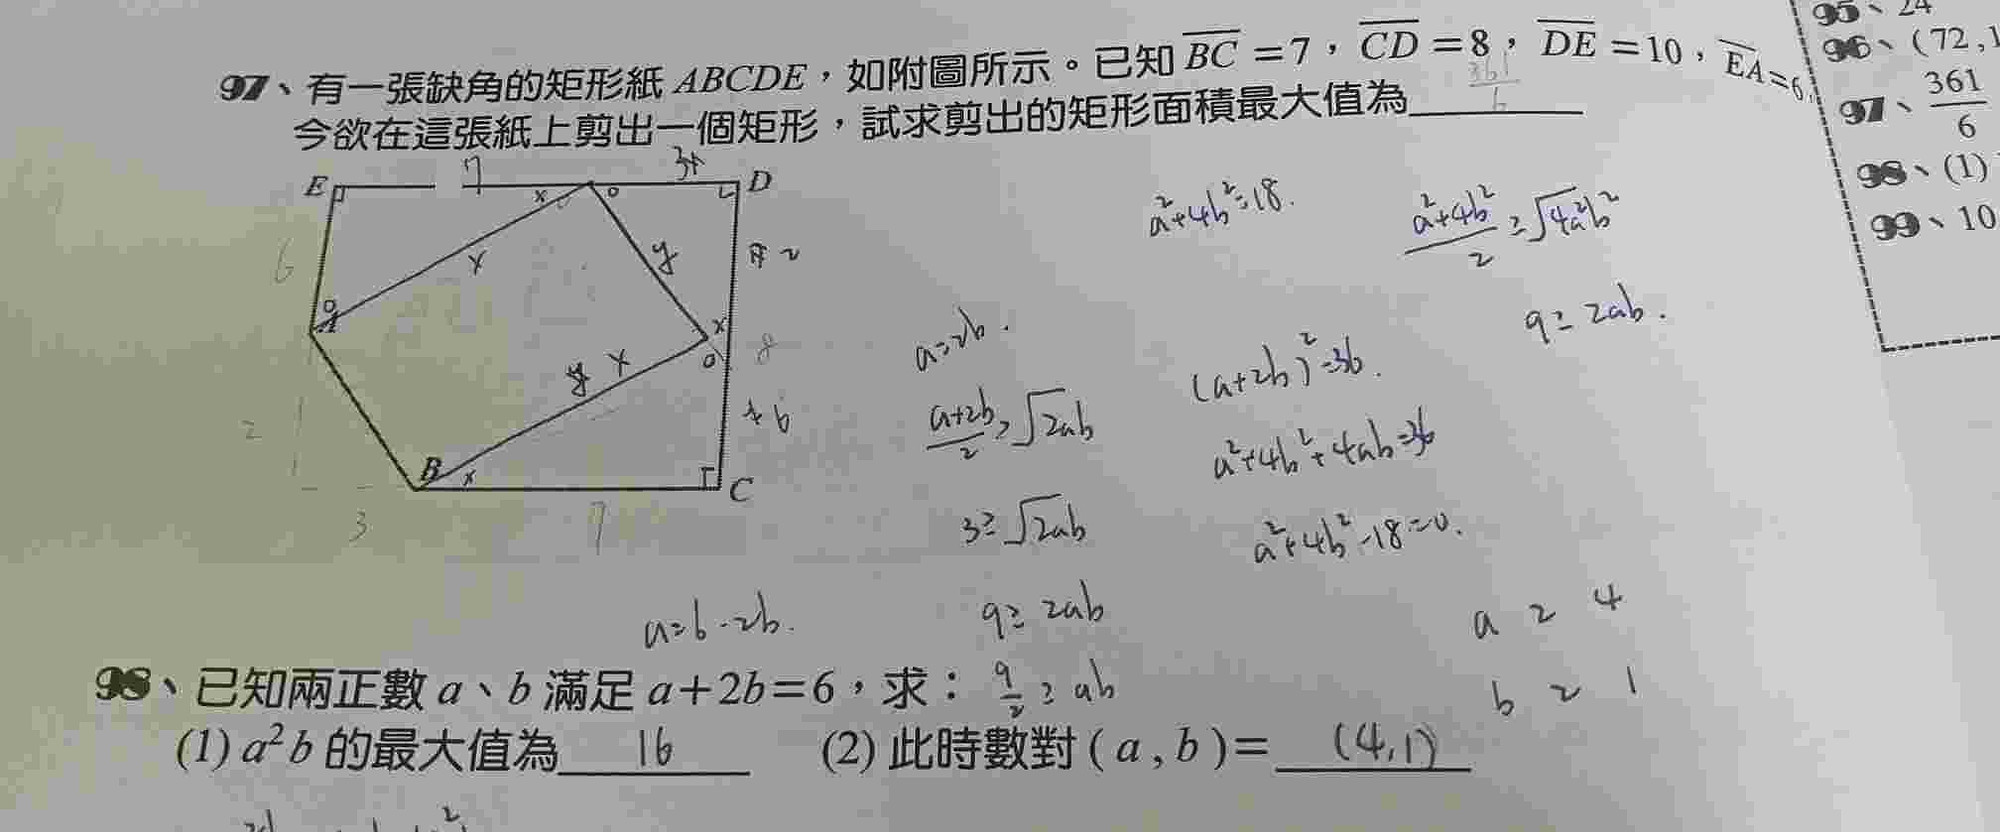 95、24
97、有一張缺角的矩形紙 ABCDE，如附圖所示。已知 BC＝7，CD＝8，DE＝10，EA＝6，
96、(72,1
今欲在這張紙上剪出一個矩形，試求剪出的矩形面積最大值為 361/6
97、361/6
98、(1)
99、10
E 7 3 D
x o
6 x y 2
A o x
8
y x o
2 6
B x C
3 7
a²+4b²=18.
(a²+4b²)/2 ≥ √4a²b²
9≥2ab.
a=2b.
(a+2b)²=36.
(a+2b)/2 ≥ √2ab
a²+4b²+4ab=36
3≥√2ab
a²+4b²-18=0.
a=6-2b.
9≥2ab
a 2 4
b 2 1
98、已知兩正數 a、b 滿足 a＋2b＝6，求： 9/2 ≥ ab
(1) a²b 的最大值為 16 (2) 此時數對 ( a , b )＝ (4,1)